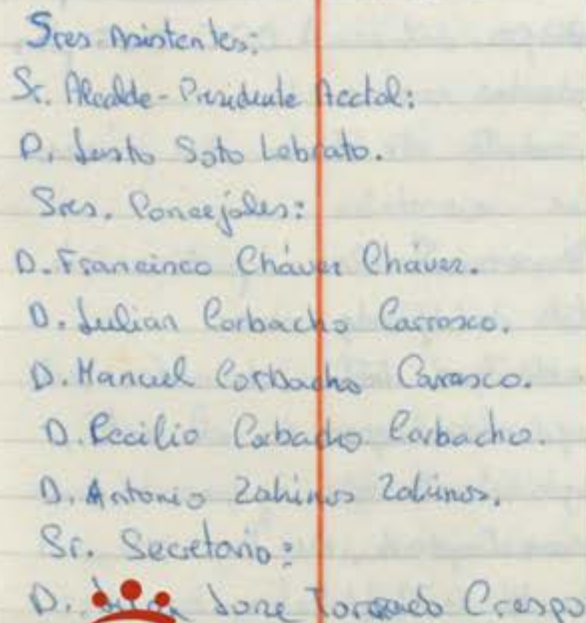 Sres. Asistentes:
Sr. Alcalde-Presidente Acctal:
D. Justo Soto Lobato.
Sres. Concejales:
D. Francisco Chávez Chávez.
D. Julian Corbacho Carrasco.
D. Manuel Corbacho Carrasco.
D. Cecilio Corbacho Corbacho.
D. Antonio Zahinos Zahinos.
Sr. Secretario:
D. Jose Torrado Crespo